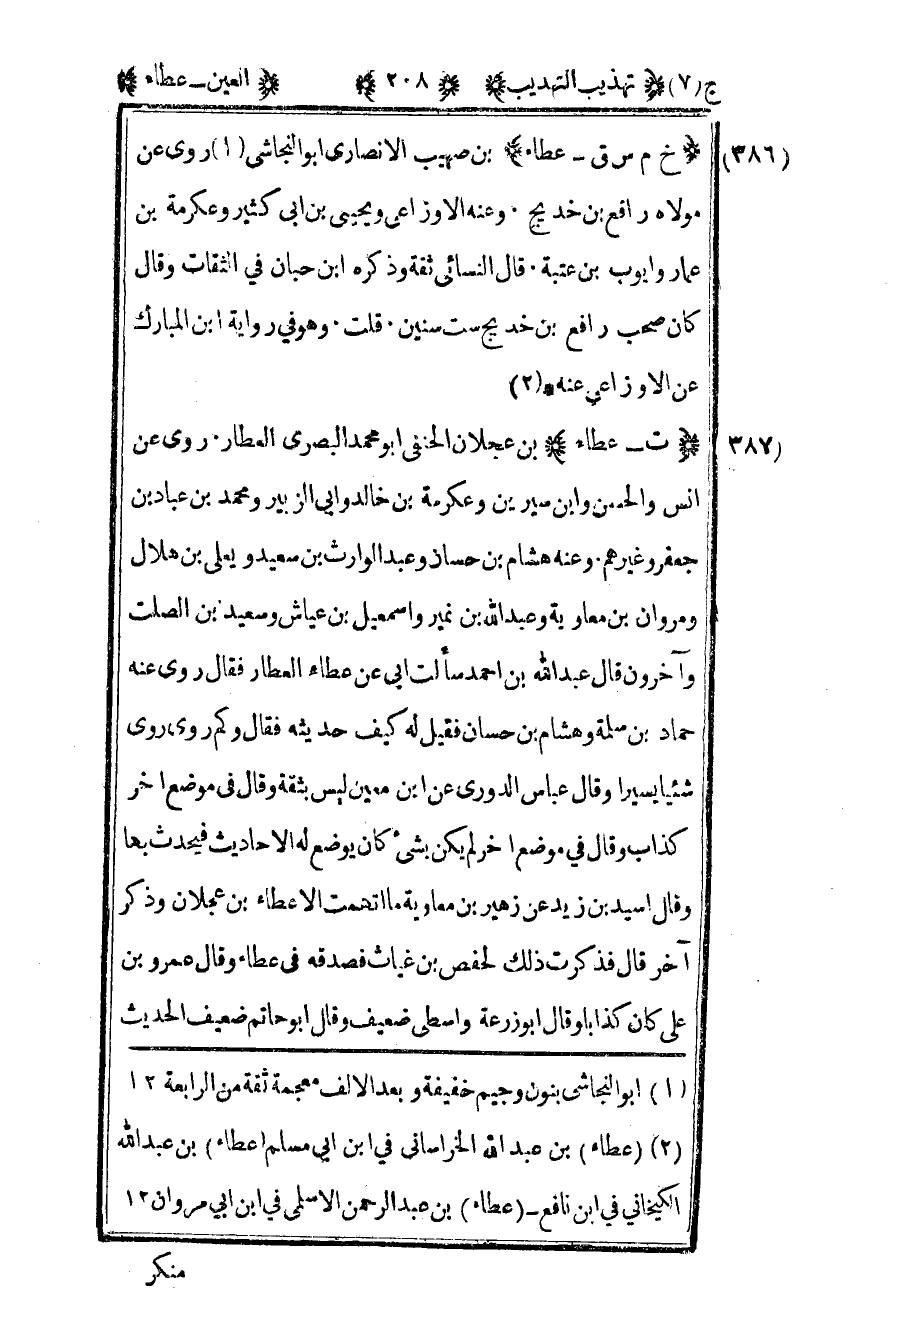 ج(٧) ﴿ تهذيب التهذيب ﴾ ﴿ ٢٠٨ ﴾ ﴿ العين ـ عطاء ﴾
(٣٨٦) ﴿ خ م س ق ـ عطاء ﴾ بن صهيب الانصارى ابوالنجاشى (١) روى عن
مولاه رافع بن خديج · وعنه الاوزاعى ويحيى بن ابى كثير وعكرمة بن
عمار وايوب بن عتبة · قال النسائى ثقة وذكره ابن حبان في الثقات وقال
كان صحب رافع بن خديج ست سنين · قلت · وهو في رواية ابن المبارك
عن الاوزاعي عنه * (٢)
(٣٨٧ ﴿ ت ـ عطاء ﴾ بن عجلان الحنفى ابو محمد البصرى العطار · روى عن
انس والحسن وابن سيرين وعكرمة بن خالد وابى الزبير ومحمد بن عباد بن
جعفر وغيرهم · وعنه هشام بن حسان وعبد الوارث بن سعيد و يعلى بن هلال
ومروان بن معاوية وعبدالله بن نمير واسمعيل بن عياش وسعيد بن الصلت
وآخرون قال عبدالله بن احمد سألت ابى عن عطاء العطار فقال روى عنه
حماد بن سلمة وهشام بن حسان فقيل له كيف حديثه فقال وكم روى روى
شئيا يسيرا وقال عباس الدورى عن ابن معين ليس بثقة وقال فى موضع اخر
كذاب وقال في موضع اخر لم يكن بشئ كان يوضع له الاحاديث فيحدث بها
وقال اسيد بن زيد عن زهير بن معاوية ما اتهمت الا عطاء بن عجلان وذكر
آخر قال فذكرت ذلك لحفص بن غياث فصدقه فى عطاء وقال عمرو بن
على كان كذابا وقال ابوزرعة واسطى ضعيف وقال ابوحاتم ضعيف الحديث
(١) ابوالنجاشى بنون وجيم خفيفة و بعد الالف معجمة ثقة من الرابعة ١٢
(٢) (عطاء) بن عبد الله الخراسانى في ابن ابي مسلم (عطاء) بن عبدالله
الكيخاراني في ابن نافع ـ (عطاء) بن عبدالرحمن الاسلمى في ابن ابي مروان ١٢
منكر